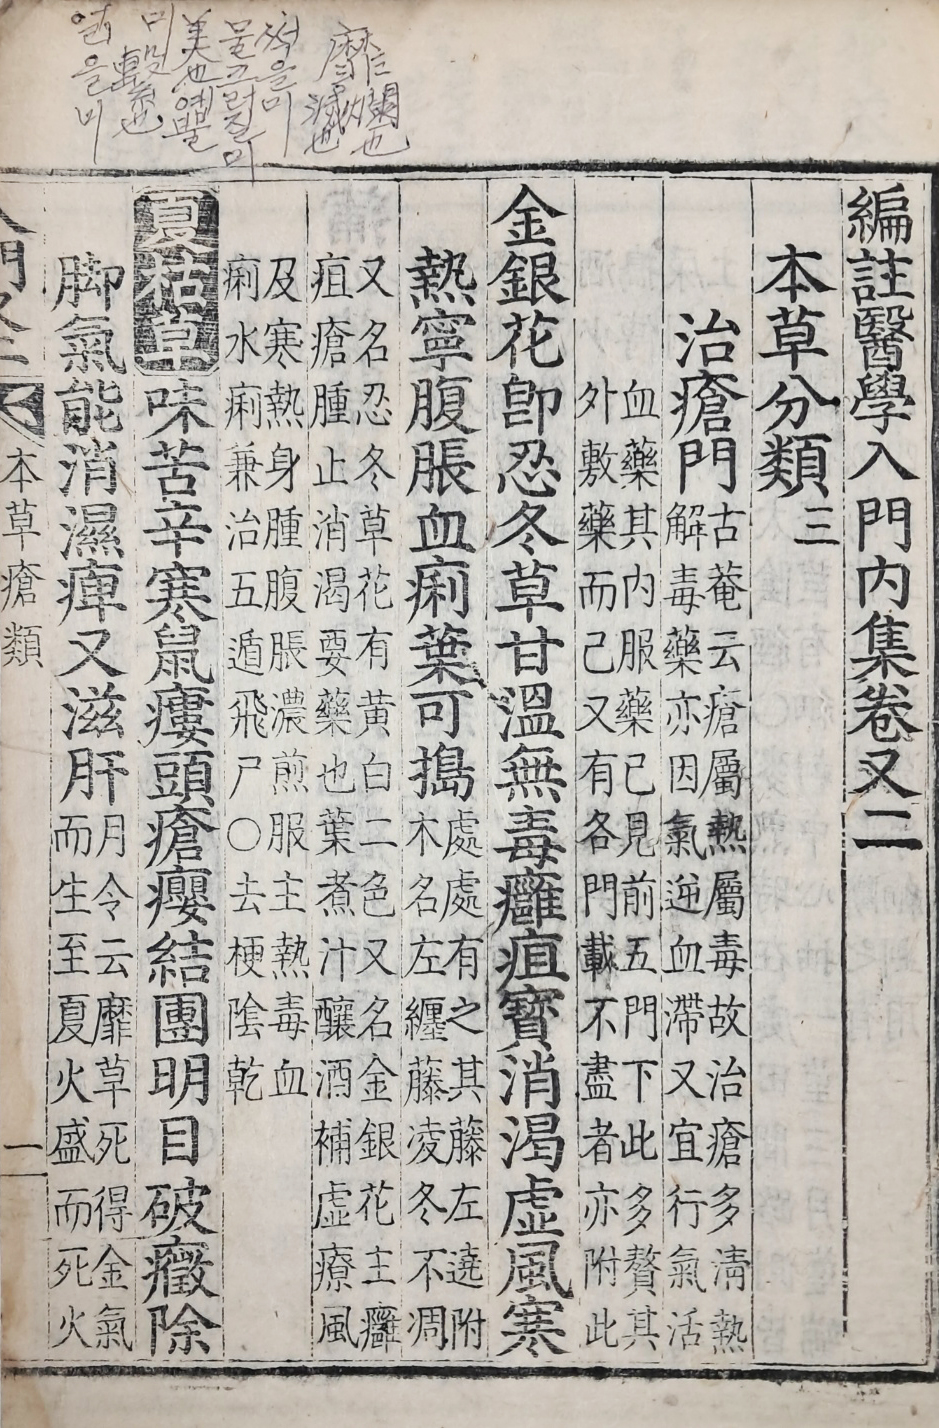 靡爛也
滅也
적을미
물크러질미
美也 예쁠
미 繫也
얽을미
編註醫學入門內集卷又二
本草分類 三
治瘡門
古菴云瘡屬熱屬毒故治瘡多淸熱
解毒藥亦因氣逆血滯又宜行氣活
血藥其內服藥已見前五門下此多贅其
外敷藥而己又有各門載不盡者亦附此
金銀花卽忍冬草甘溫無毒癰疽寶消渴虛風寒
熱寧腹脹血痢葉可搗
處處有之其藤左遶附
木名左纏藤凌冬不凋
又名忍冬草花有黃白二色又名金銀花主癰
疽瘡腫止消渴要藥也葉煮汁釀酒補虛療風
及寒熱身腫腹脹濃煎服主熱毒血
痢水痢兼治五遁飛尸○去梗陰乾
夏枯草味苦辛寒鼠瘻頭瘡癭結團明目破癥除
脚氣能消濕痺又滋肝
月令云靡草死得金氣
而生至夏火盛而死火
入門又二
本草瘡類
一